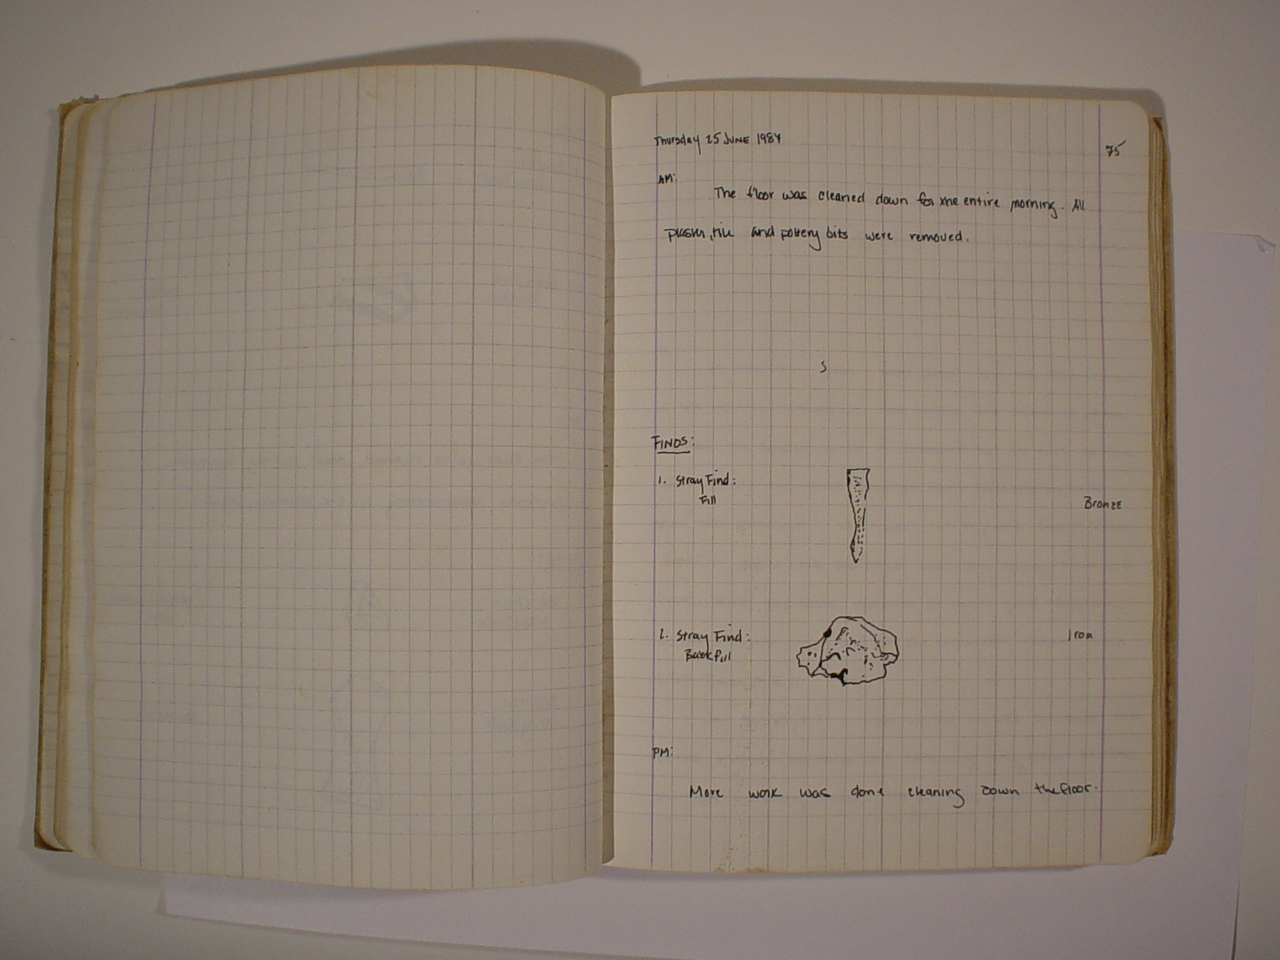 Thursday 25 JUNE 1987
75
AM:
The floor was cleaned down for the entire morning. All
plaster, tile and pottery bits were removed.
FINDS:
1. Stray Find:
Fill
Bronze
2. Stray Find:
Backfill
Iron
PM:
More work was done cleaning down the floor.